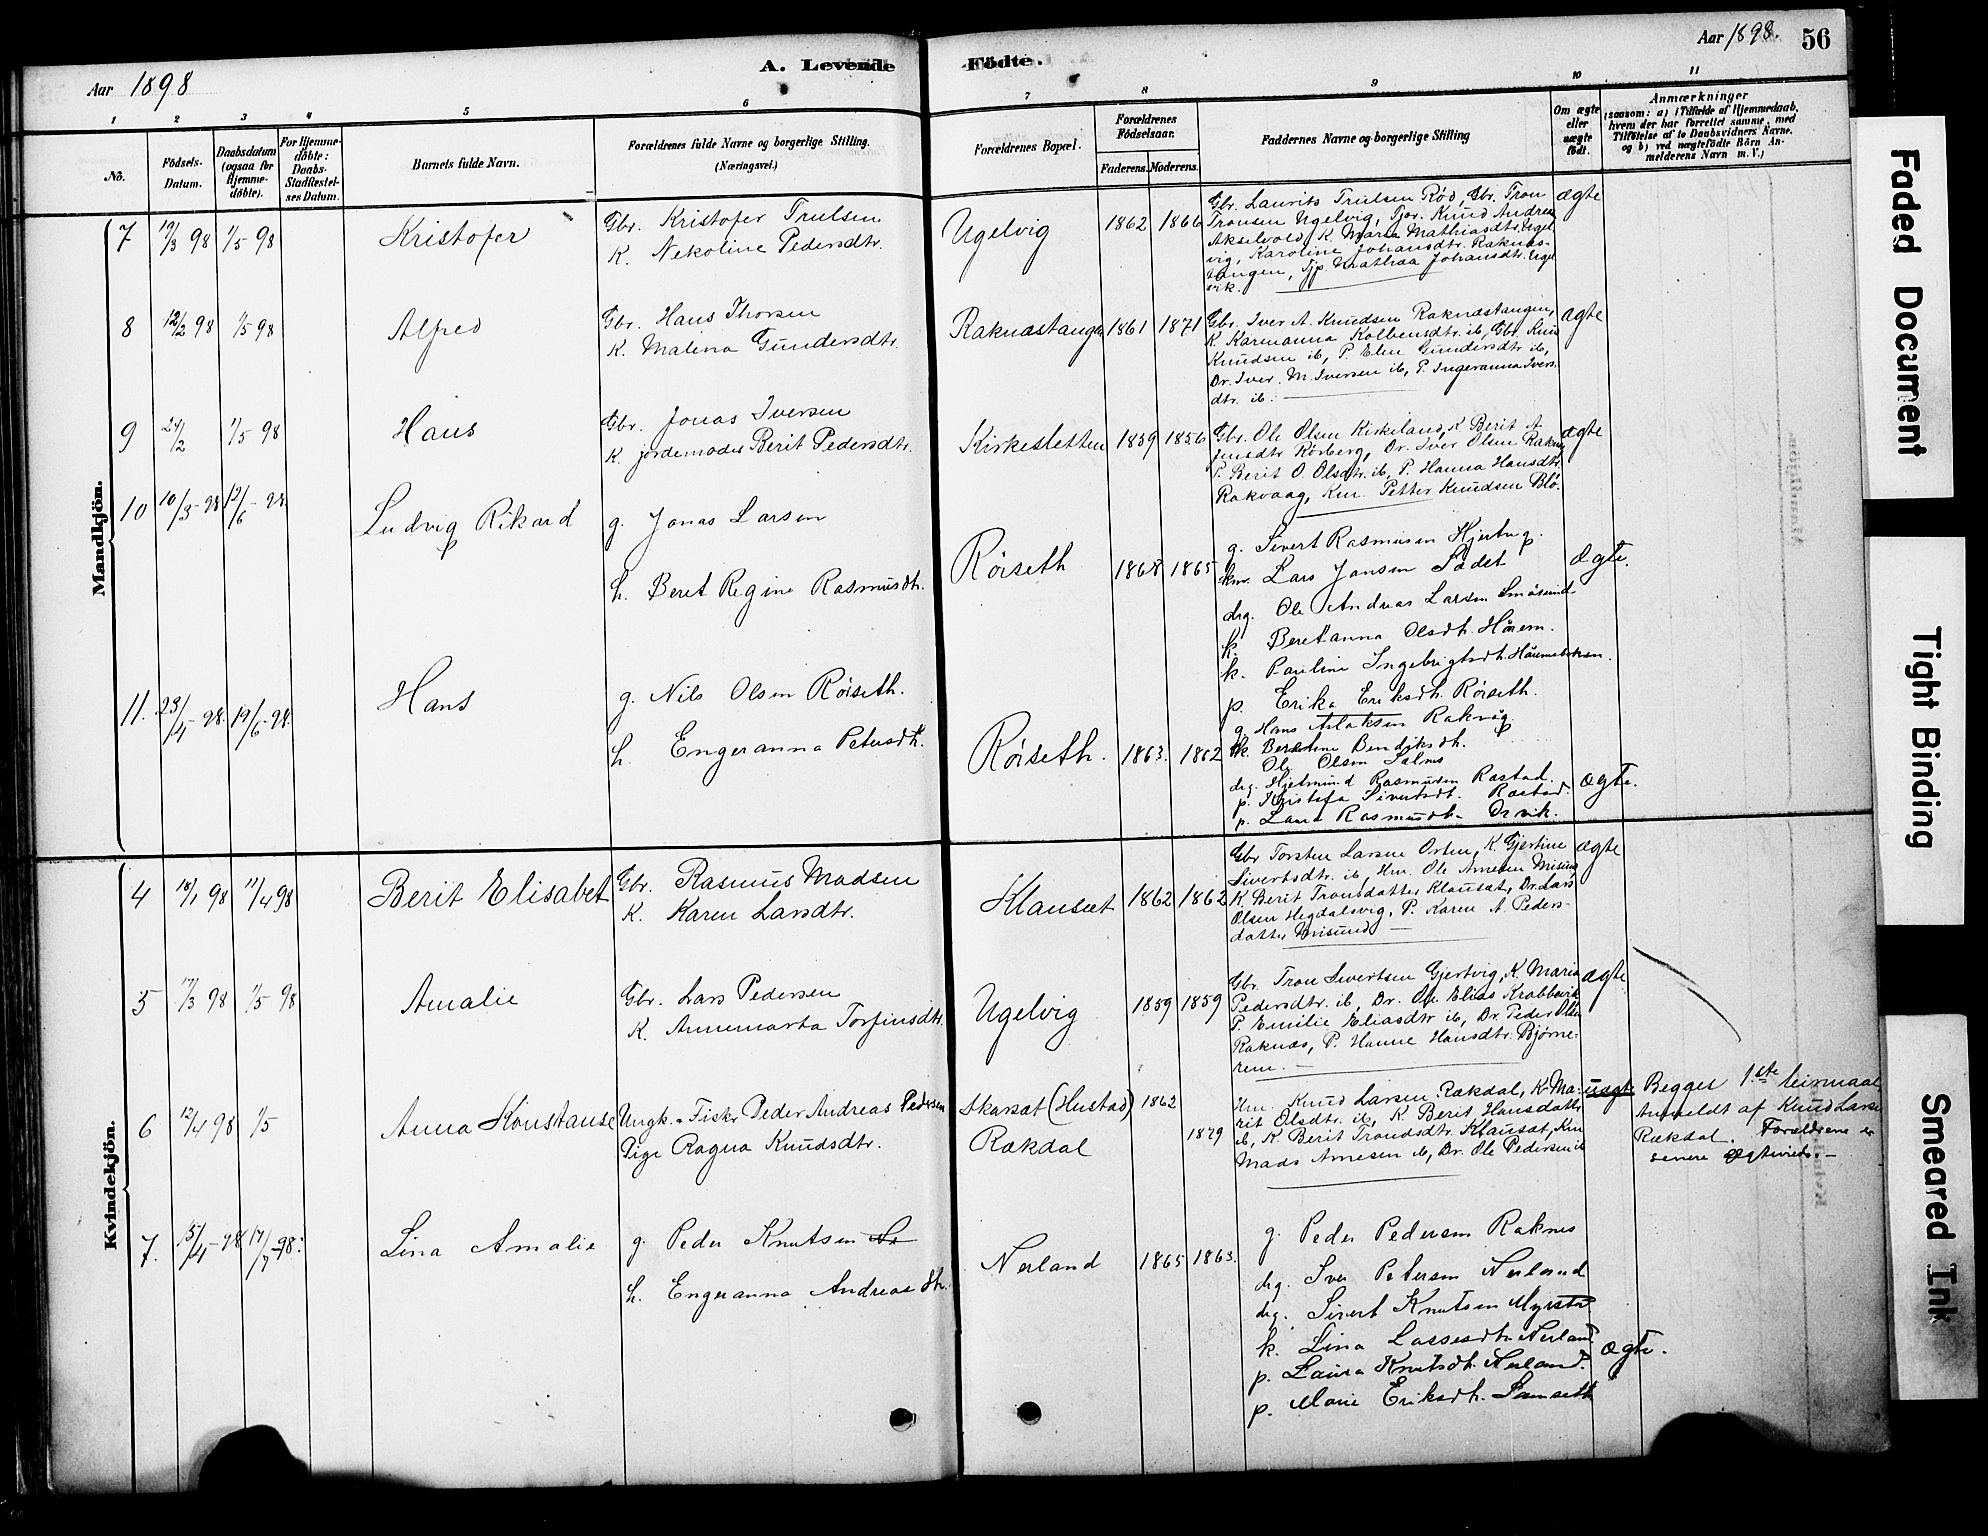 Aar 1898
A. Levende
Födte.
Aar 1898.
56
1 2 3 4 5 6 7 8 9 10 11
No.
Födsels-
Datum.
Daabsdatum
(ogsaa for
Hjemme-
döbte).
For Hjemme-
döbte:
Daabs-
Stadfæstel-
ses Datum.
Barnets fulde Navn.
Forældrenes fulde Navne og borgerlige Stilling.
(Næringsvei.)
Forældrenes Bopæl.
Forældrenes
Födselsaar.
Faderens. Moderens.
Faddernes Navne og borgerlige Stilling
Om ægte
eller
uægte
födt.
Anmærkninger
(saasom: a) i Tilfælde af Hjemmedaab,
hvem der har forrettet samme, med
Tilföielse af to Daabsvidners Navne.
og b) ved uægtefödte Börn An-
melderens Navn m. V.)
Mandkjön.
7 19/3 98 1/5 98
Kristofer
Gbr. Kristofer Trulsen
K. Nekoline Pedersdtr.
Ugelvig
1862 1866
Gbr. Laurits Trulsen Rød, Gbr. Tron
Tronsen Ugelvig, Tjor. Knud Andreas
Akselvold, K. Maria Mathiasdtr. Ugel
vig, Karoline Johansdtr. Raknæs-
tangen, Tjp. Mathea Johansdtr. Ugel
vik.
ægte
8 12/2 98 1/5 98
Alfred
Gbr. Hans Thorsen
K. Malena Gundersdtr.
Raknæstangen
1861 1871
Gbr. Iver A. Knudsen Raknæstangen,
K. Karenanna Kolbensdtr. ib, Gbr. Knud
Knudsen ib, P. Elen Gundersdtr. ib,
Dr. Iver M. Iversen ib, P. Ingeranna Ivers
dtr. ib.
ægte
9 24/2 1/5 98
Hans
Gbr. Jonas Iversen
K. jordemoder Berit Pedersdtr.
Kirkesletten
1859 1856
Gbr. Ole Olsen Kirkeland, K Berit A
Jensdtr Rörberg, Dr. Iver Olsen Raknæs
P. Berit O. Olsdtr. ib. P. Hanna Hansdtr.
Rakvaag, Km. Petter Knudsen Blø.
ægte
10 10/3-98 12/6-98
Ludvig Rikard
g. Jonas Larsen
h. Beret Regine Rasmusdtr.
Röiseth
1868 1865
g. Sivert Rasmusen Hjertvig.
km. Lars Jonsen Sødet
drg. Ole Andreas Larsen Småsund
k. Beretanna Olsdtr. Hårem.
k. Pauline Ingebrigtsdtr. Håmmebakken.
p. Erika Eriksdtr. Röiseth.
Ægte.
11. 23/4-98. 19/6-98.
Hans
g. Nils Olsen Röiseth.
h. Engeranna Petersdtr.
Röiseth.
1863. 1862
g. Hans Aslaksen Rakvåg.
k. Bendiksdtr.
Ole Olsen Talnes
drg. Hjelmund Rasmusen Ræstad.
p. Kristofa Sivertsdt. Ræstad.
p. Laura Rasmusdtr. Orvik.
ægte.
Kvindekjön.
4 18/1 98 11/4 98
Berit Elisabet
Gbr. Rasmus Madsen
K. Karen Larsdtr.
Klausæt
1862 1862
Gbr Torsten Larsen Orten, K. Gjertine
Sivertsdtr. ib, Hm. Ole Arnesen Misund
K. Berit Tronsdatter Klausæt, Dr. Lars
Olsen Hegdalsvig, P. Karen A. Peders-
datter Misund
ægte
5 17/3 98 1/5 98
Amalie
Gbr. Lars Pedersen
K. Annemarta Torfinsdtr.
Ugelvig
1859 1859
Gbr. Tron Sivertsen Gjertvig, K. Maria
Pedersdtr. ib, Dr. Ole Elias Krabbevik
P. Emilie Eliasdtr ib, Dr. Peder Olsen
Raknæs, P. Hanne Hansdtr. Bjørne-
rem. -
ægte
6 12/4 98 1/5
Anna Konstanse
Ungk. Fiskr. Peder Andreas Pedersen
Pige Ragna Knudsdtr.
Skarsæt (Hustad)
Rækdal
1862
1879
Hm. Knud Larsen Rækdal, K. Ma-
rit Olsdtr. ib, K Berit Hansdatter
ib, K. Berit Trondsdtr. Klausæt, Km
Mads Arnesen ib, Dr. Ole Pedersen ib
uægte
Begges 1.ste leiermaal
Anmeldt af Knud Larsen
Rækdal. Forældrene er
senere ægteviede. -
7. 15/4-98 17/7-98.
Lina Amalie
g. Peder Knutsen Ne
h. Engeranna Andreasdtr.
Nerland
1865 1863.
g. Peder Pedersen Raknes
drg. Iver Petersen Nerland
drg. Sivert Knutsen Myrstø
k. Lina Lassesdtr Nerland
p. Laura Knutsdtr. Nerland.
p. Marie Eriksdtr. Sunseth
ægte.
Faded Document
Tight Binding
Smeared Ink